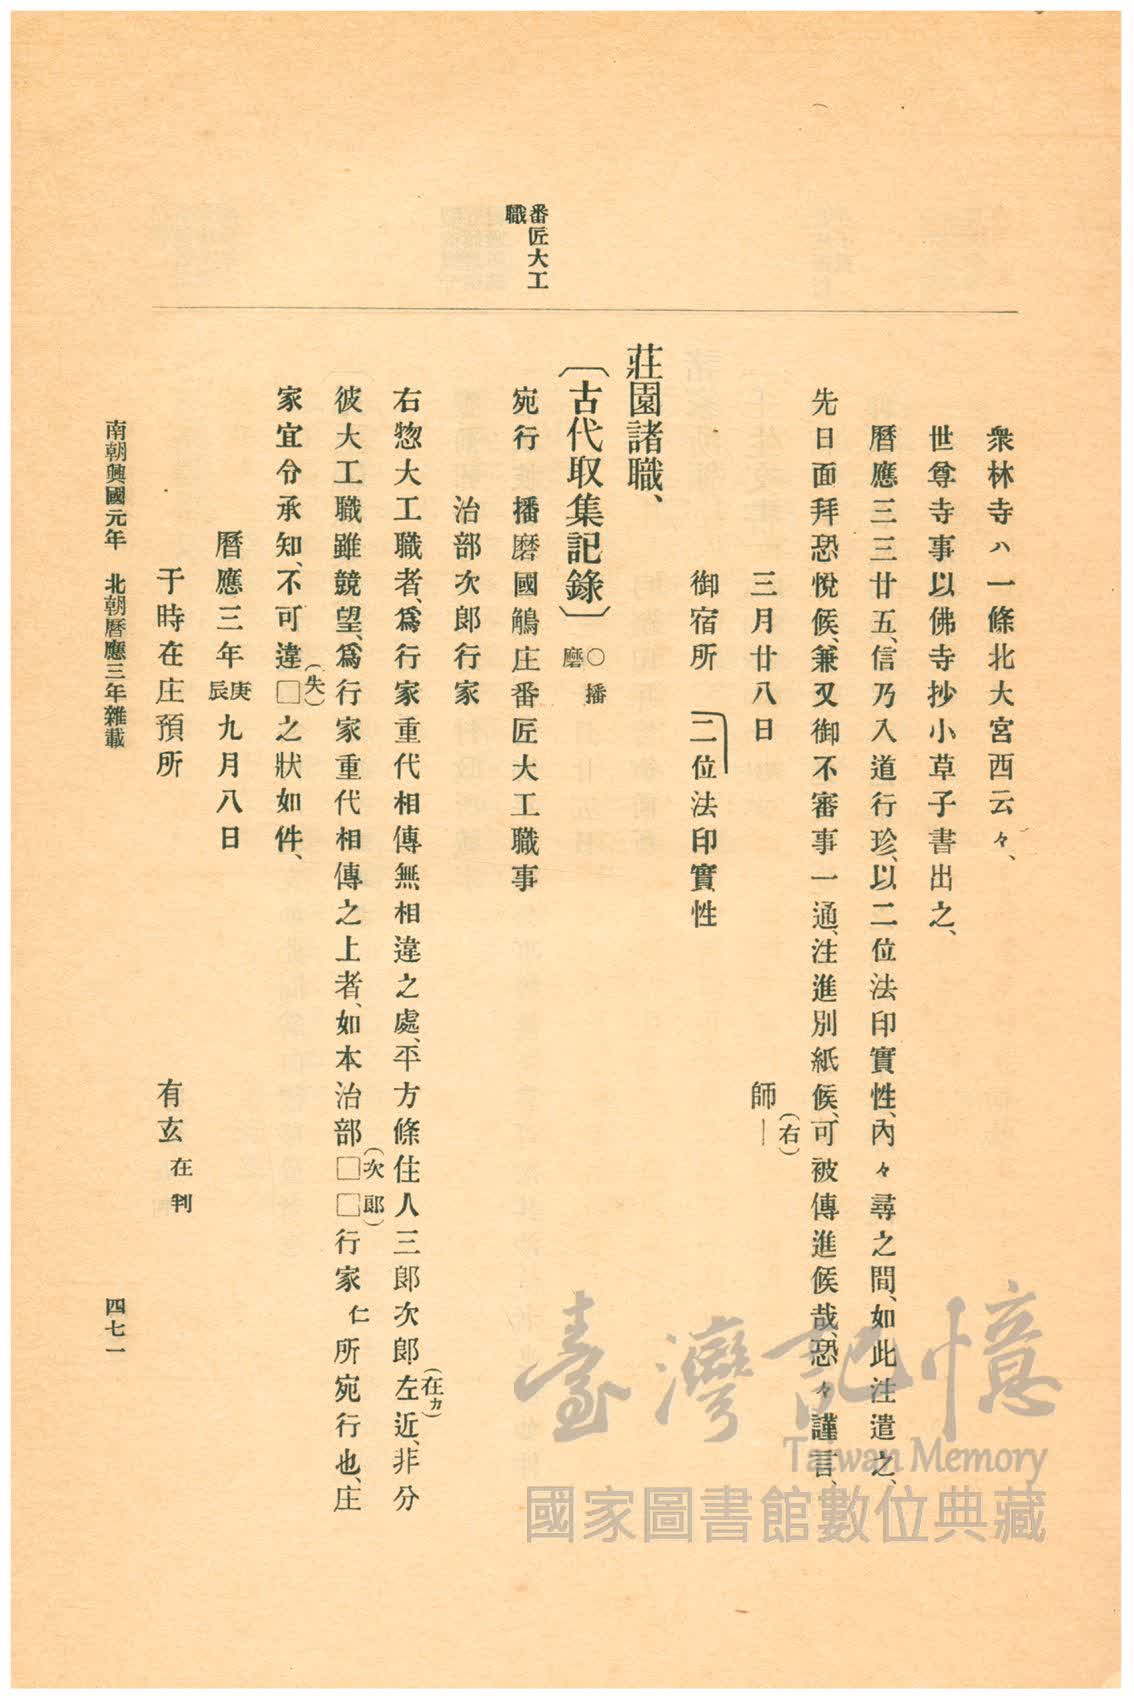 衆林寺ハ一條北大宮西云々、
世尊寺事以佛寺抄小草子書出之、
曆應三三廿五、信乃入道行珍、以二位法印實性、內々尋之間、如此注遣之、
先日面拜恐悅候、兼又御不審事一通、注進別紙候、可被傳進候哉、恐々謹言、
三月廿八日 師(右)｜
御宿所 二位法印實性
莊園諸職、
〔古代取集記錄〕 ○播磨
番匠大工職
宛行 播磨國鵤庄番匠大工職事
治部次郎行家
右惣大工職者、爲行家重代相傳無相違之處、平方條住人三郎次郎左(在カ)近、非分
彼大工職雖競望、爲行家重代相傳之上者、如本治部□□(次郎)行家仁所宛行也、庄
家宜令承知、不可違□(失)之狀如件、
曆應三年庚辰九月八日
于時在庄預所 有玄在判
南朝興國元年 北朝曆應三年雜載 四七一
臺灣記憶
Taiwan Memory
國家圖書館數位典藏